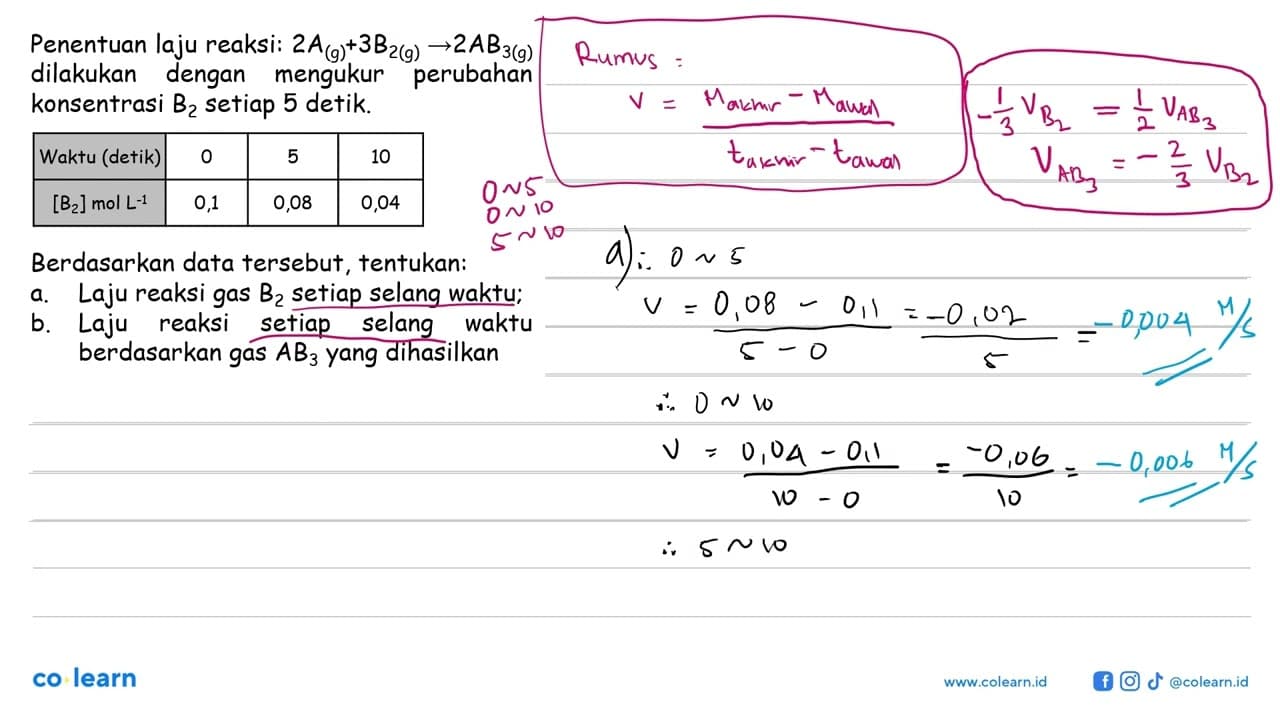 Penentuan laju reaksi: 2A(g)+3B2(g) →2AB3(g)
dilakukan dengan mengukur perubahan
konsentrasi B2 setiap 5 detik.
Waktu (detik) 0 5 10
[B2] mol L-1 0,1 0,08 0,04
Berdasarkan data tersebut, tentukan:
a. Laju reaksi gas B2 setiap selang waktu;
b. Laju reaksi setiap selang waktu
berdasarkan gas AB3 yang dihasilkan
0~5
0~10
5~10
Rumus =
V = Makhir - Mawal
takhir - tawal
-1/3 VB2 = 1/2 VAB3
VAB3 = - 2/3 VB2
a) ∴ 0 ~ 5
V = 0,08 - 0,1 = -0,02 = -0,004 M/s
5 - 0 5
∴ 0 ~ 10
V = 0,04 - 0,1 = -0,06 = -0,006 M/s
10 - 0 10
∴ 5 ~ 10
co learn
www.colearn.id @colearn.id